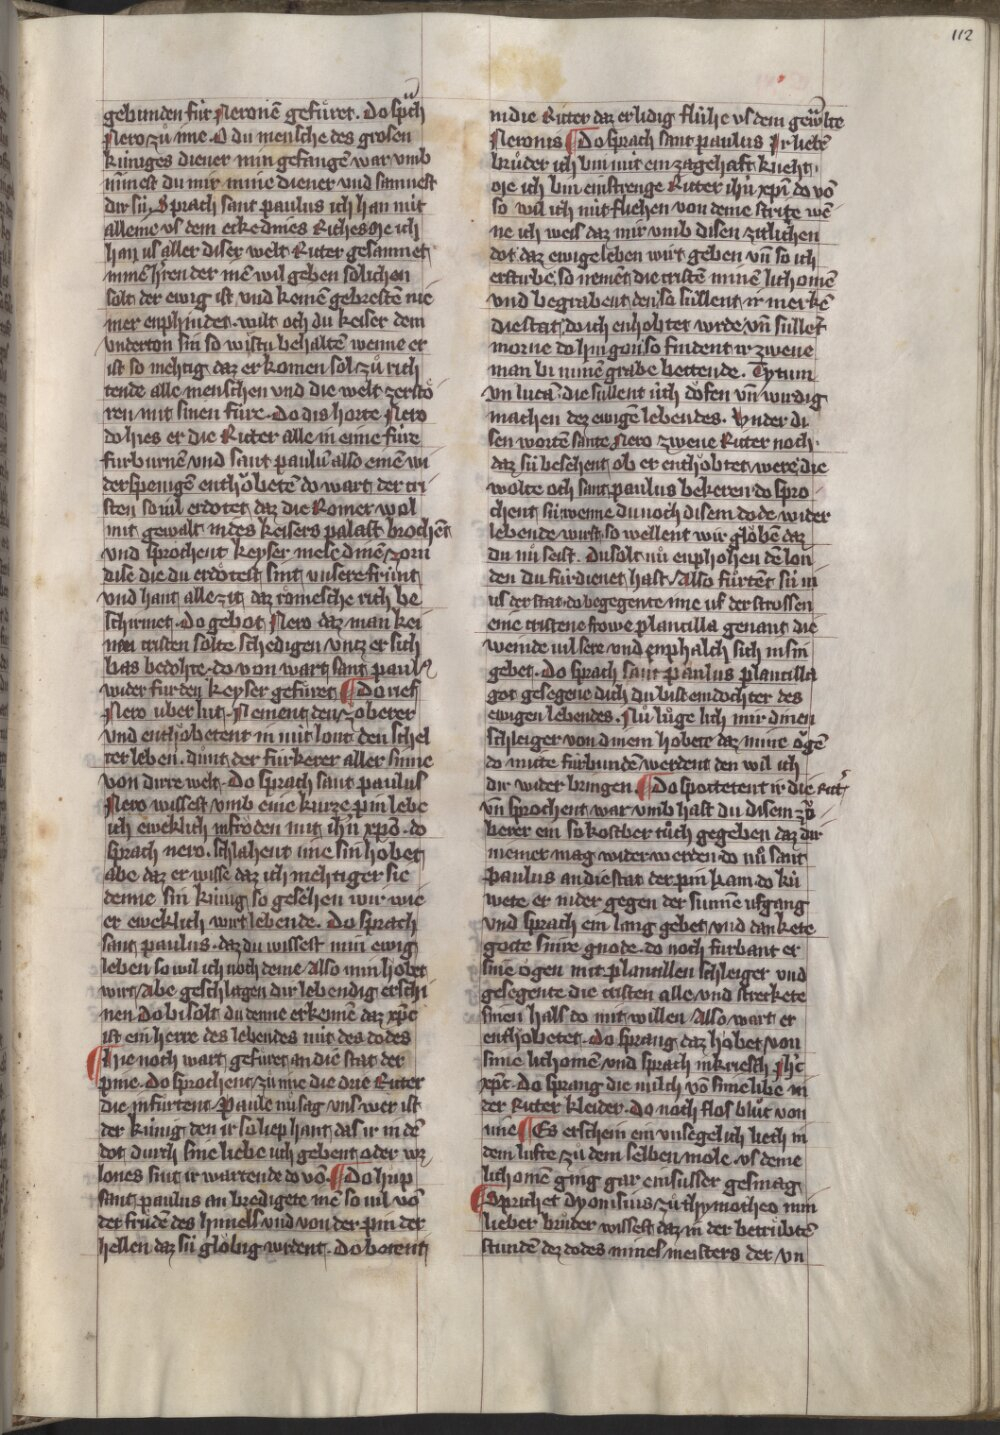 112
gebunden für Neronē gefu̍ret. Do spͮch
Nero zů ime. O du mensche des grosen
ku̍niges diener min gefangē war vmb
nimest du mir mine diener vnd samnest
dir su̍. Sprach sant paulus ich han nu̍t
alleine vs dem ecke dines Riches me ich
han us aller diser welt Ritter gesamnet
minē h'ren der inē wil geben solichen
solt der ewig ist vnd keinē gebrestē nie
mer enphindet. wilt och du keiser dem
vnderton sin so wistu behaltē wenne er
ist so mehtig daz er komen sol zů rich
tende alle menschen vnd die welt zerstö
ren mit sinen fu̍re. Do dis horte Nero
do hies er die Ritter alle in eime fu̍re
furburnē vnd sant paulū also einē wi
derspenigē enthöbetē do wart der cri
sten so vil erdötet daz die Romer wol
mit gewalt in des keisers palast brochēt
vnd sprochent keyser mese dinē zorn
dise die du erdötest sint vnsere fru̍nt
vnd hant alle zit daz römesche rich be
schirmet. Do gebot Nero daz man kei
nen cristen solte schedigen vntz er sich
bas bedohte. do von wart sant paul9
wider fur den keyser gefu̍ret ¶ Do rief
Nero uber lut. Nement den zöberer
vnd enthöbetent in nu̍t lont den schel
ter leben. du̍nt der fu̍rkerer aller sinne
von dirre welt. Do sprach sant paulus
Nero wissest vmb eine kurze pin lebe
ich eweklich in fröden mit ih'u xp̄o. do
sprach nero. schlahent ime sin höbet
abe daz er wisse daz ich mehtiger sie
denne sin ku̍nig so gesehen wir wie
er eweklich wirt lebende. Do sprach
sant paulus. daz du wissest min ewig
leben so wil ich noch deme also min höbet
wirt abe geschlagen dir lebendig erschi
nen. Do bi solt du denne erkenne daz xp̄c
ist ein herre des lebendes nu̍t des dodes
¶ hie noch wart gefu̍ret an die stat der
pine. Do sprochent zů ime die drie Ritter
die in fürtent Paule nů sag vns wer ist
der ku̍nig den ir so liep hant das ir in dē
dot durch sine liebe u̍ch gebent oder wz
lones sint ir wartende do vō ¶ Do hůp
sant paulus an bredigete inē so vil vō
der fru̍de des himels vnd von der pin der
hellen daz su̍ glöbig wrdent. Do botent
in die Ritter daz er lidig flu̍he vs dem gewͮlte
Neronis ¶ Do sprach sant paulus Ir liebē
bru̍der ich bin nu̍t ein zagehaft kneht.
me ich bin ein strenge Ritter ih'u xp̄i do vō
so wil ich nu̍t fliehen von deme strite wē
ne ich weis daz mir vmb disen zitlichen
dot daz ewige leben wirt geben vn̄ so ich
ersturbe, so nemēt die cristē minē lichomē
vnd begrabent den, so su̍llent ir merkē
die stat, do ich enhöbtet wrde, vn̄ su̍llet
morne do hin gon so findent ir zwene
man bi minē grabe bettende. Tytum
vn lucā, die su̍llent u̍ch döfen vn̄ wirdig
machen dez ewigē lebendes. Vnder di
sen wortē sante Nero zwene Ritter noch.
daz su̍ besehent ob er enthöbtet were, die
wolte och sant paulus bekeren. do spro
chent su̍ wenne du noch disem dode wider
lebende wirst so wellent wir glöbē daz
du nů seist. Du solt nů enphohen dē lon
den du fu̍rdienet hast. Also fu̍rtēt su̍ in
us der stat. do begegente ime uf der strossen
eine cristene frowe plantilla genant die
weinde vil sere vnd enphalch sich in sin
gebet. Do sprach sant Paulus plantilla
got gesegene dich du bist ein dochter des
ewigen lebendes. Nů luge lich mir dinen
schleiger von dinem höbete daz mine ögē
do mitte fu̍rbunde werdent den wil ich
dir wider bringen. ¶ Do spottetent ir die ritt'
vn̄ sprochent war vmb hast du disem zö
berer ein so kostber tůch gegeben daz dir
niemer mag wider werden. do nů sant
Paulus an die stat der pin kam. do ku̍
wete er nider gegen der sunnē ufgang
vnd sprach ein lang gebet vnd dankete
gotte sinre gnode. do noch furbant er
sine ögen mit plantillen schleiger vnd
gesegente die cristen alle vnd streckete
sinen hals do mit willen. Also wart er
enthöbetet. Do sprang daz höbet von
sime lichomē vnd sprach in kriesch Ih'c
xp̄c. Do sprang die milch vō sime libe in
der Ritter kleider. Do noch flos blůt von
ime ¶ Es erschein ein vnsegelich lieth in
dem lufte zu dem selben mole. vs deme
lichomē ging gar ein su̍sser gesmag
¶ Sprichet Dyonisius zů thymotheo min
lieber bru̍der wissest daz in der betru̍btē
stundē dez dodes mines meisters der vn